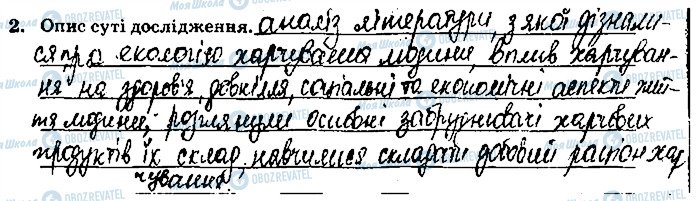 2. Опис суті дослідження. аналіз літератури, з якої дізнали-
ся про екологію харчування людини, вплив харчуван-
ня на здоров'я, довкілля, соціальні та економічні аспекти жит-
тя людини; розглянули основні забруднювачі харчових
продуктів їх склад, навчилися складати добовий раціон хар
чування